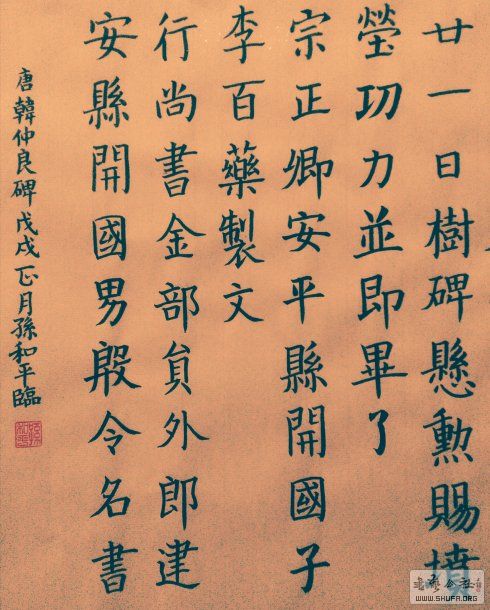 廿一日樹碑懸勳賜墳
塋功力並即畢了
宗正卿安平縣開國子
李百藥製文
行尚書金部員外郎建
安縣開國男殷令名書
唐韓仲良碑戊戌正月孫和平臨
WWW.SHUFA.ORG